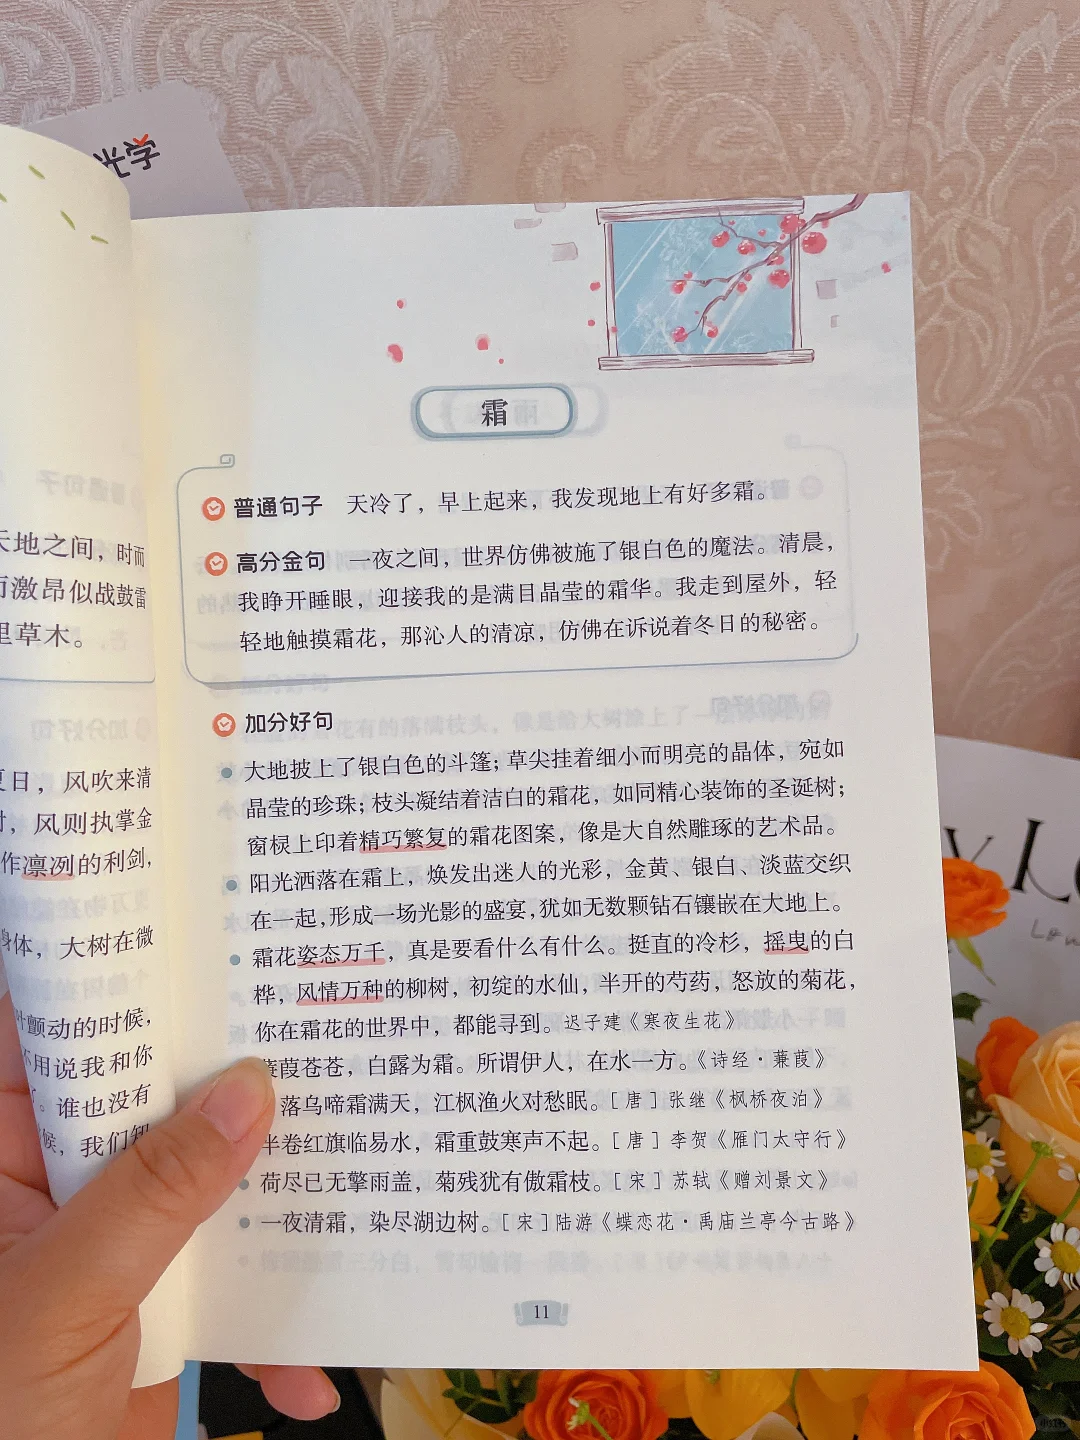 光学
天地之间，时而
而激昂似战鼓雷
里草木。
夏日，风吹来清
时，风则执掌金
作凛冽的利剑，
身体，大树在微
叶颤动的时候，
不用说我和你
。谁也没有
候，我们知
霜
普通句子 天冷了，早上起来，我发现地上有好多霜。
高分金句 一夜之间，世界仿佛被施了银白色的魔法。清晨，
我睁开睡眼，迎接我的是满目晶莹的霜华。我走到屋外，轻
轻地触摸霜花，那沁人的清凉，仿佛在诉说着冬日的秘密。
加分好句
大地披上了银白色的斗篷；草尖挂着细小而明亮的晶体，宛如
晶莹的珍珠；枝头凝结着洁白的霜花，如同精心装饰的圣诞树；
窗棂上印着精巧繁复的霜花图案，像是大自然雕琢的艺术品。
阳光洒落在霜上，焕发出迷人的光彩，金黄、银白、淡蓝交织
在一起，形成一场光影的盛宴，犹如无数颗钻石镶嵌在大地上。
霜花姿态万千，真是要看什么有什么。挺直的冷杉，摇曳的白
桦，风情万种的柳树，初绽的水仙，半开的芍药，怒放的菊花，
你在霜花的世界中，都能寻到。迟子建《寒夜生花》
蒹葭苍苍，白露为霜。所谓伊人，在水一方。《诗经·蒹葭》
落乌啼霜满天，江枫渔火对愁眠。[唐]张继《枫桥夜泊》
半卷红旗临易水，霜重鼓寒声不起。[唐]李贺《雁门太守行》
荷尽已无擎雨盖，菊残犹有傲霜枝。[宋]苏轼《赠刘景文》
一夜清霜，染尽湖边树。[宋]陆游《蝶恋花·禹庙兰亭今古路》
11